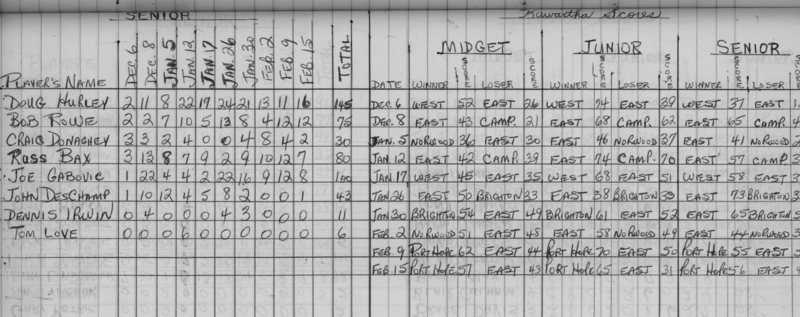 SENIOR Kawartha Scores
MIDGET JUNIOR SENIOR
PLAYER'S NAME DEC. 6 DEC. 8 JAN. 5 JAN. 12 JAN. 17 JAN. 26 JAN. 30 FEB. 2 FEB. 9 FEB. 15 TOTAL DATE WINNER SCORE LOSER SCORE WINNER SCORE LOSER SCORE WINNER SCORE LOSER
DOUG HURLEY 2 11 8 22 17 24 21 13 11 16 145 DEC. 6 WEST 52 EAST 26 WEST 74 EAST 29 WEST 37 EAST
BOB ROWE 2 2 7 10 5 13 8 4 12 12 75 DEC. 8 EAST 43 CAMP. 21 EAST 68 CAMP. 62 EAST 65 CAMP.
CRAIG DONAGHEY 3 3 2 4 0 0 4 8 4 2 30 JAN. 5 NORWOOD 36 EAST 30 EAST 46 NORWOOD 37 EAST 41 NORWOOD
RUSS BAX 3 13 8 7 9 2 9 10 12 7 80 JAN. 12 EAST 42 CAMP. 39 EAST 74 CAMP. 70 EAST 57 CAMP.
JOE GABOVIC 1 22 4 4 2 22 16 9 12 8 100 JAN. 17 WEST 45 EAST 35 WEST 68 EAST 51 WEST 58 EAST
JOHN DESCHAMP 1 10 12 4 5 8 2 0 0 1 43 JAN. 26 EAST 50 BRIGHTON 33 EAST 38 BRIGHTON 33 EAST 73 BRIGHTON
DENNIS IRWIN 0 4 0 0 0 4 3 0 0 0 11 JAN. 30 BRIGHTON 54 EAST 49 BRIGHTON 61 EAST 52 EAST 65 BRIGHTON
TOM LOVE 0 0 0 6 0 0 0 0 0 0 6 FEB. 2 NORWOOD 51 EAST 48 EAST 58 NORWOOD 49 EAST 44 NORWOOD
FEB. 9 PORT HOPE 62 EAST 44 PORT HOPE 70 EAST 50 PORT HOPE 55 EAST
FEB. 15 PORT HOPE 57 EAST 43 PORT HOPE 65 EAST 31 PORT HOPE 56 EAST